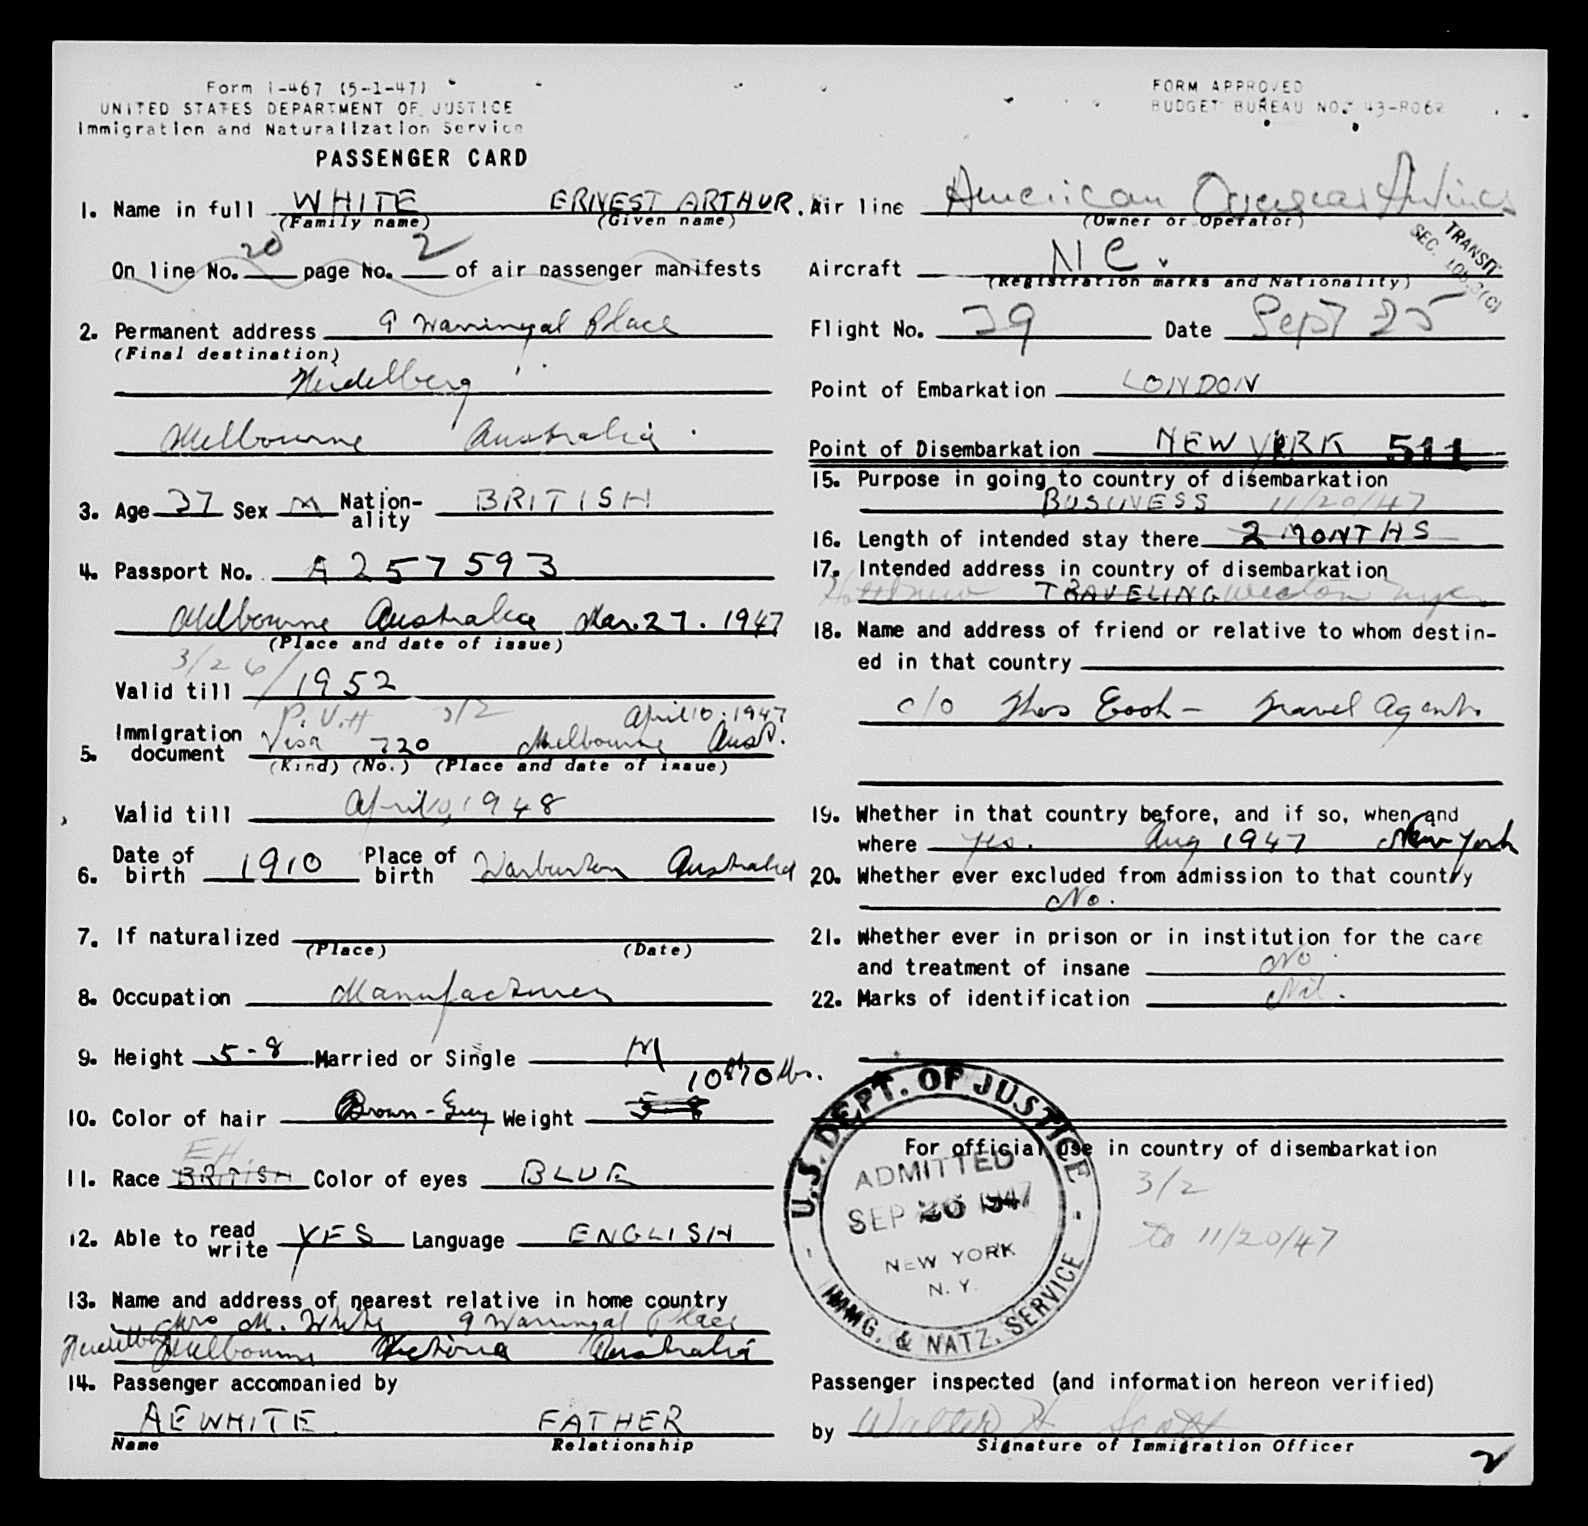 Form I-467 (5-1-47)
UNITED STATES DEPARTMENT OF JUSTICE
Immigration and Naturalization Service
PASSENGER CARD
FORM APPROVED
BUDGET BUREAU NO. 43-R062
1. Name in full WHITE ERNEST ARTHUR.
(Family name) (Given name)
On line No. 20 page No. 2 of air passenger manifests
2. Permanent address 9 Warringal Place
(Final destination)
Heidelberg
Melbourne Australia.
3. Age 37 Sex M Nationality BRITISH
4. Passport No. A257593
Melbourne Australia Mar. 27. 1947
(Place and date of issue)
3/26/
Valid till 1952
P.V. 3/2 April 10. 1947
5. Immigration document Visa 720 Melbourne Aust.
(Kind) (No.) (Place and date of issue)
Valid till April 10, 1948
6. Date of birth 1910 Place of birth Warburton Australia
7. If naturalized
(Place) (Date)
8. Occupation Manufacturer
9. Height 5-8 Married or Single M
10 st 10 lbs.
10. Color of hair Brown-Grey Weight 5-8
EH
11. Race BRITISH Color of eyes BLUE
12. Able to read write YES Language ENGLISH
13. Name and address of nearest relative in home country
Mrs M. White 9 Warringal Place
Heidelberg Melbourne Victoria Australia
14. Passenger accompanied by
AE WHITE FATHER
Name Relationship
Air line American Overseas Airlines
(Owner or Operator)
TRANSIT
SEC.
Aircraft NC.
(Registration marks and Nationality)
Flight No. 29 Date Sept 25
Point of Embarkation LONDON
Point of Disembarkation NEW YORK 511
15. Purpose in going to country of disembarkation
BUSINESS 11/20/47
16. Length of intended stay there 2 MONTHS
17. Intended address in country of disembarkation
TRAVELING
18. Name and address of friend or relative to whom destin-
ed in that country
c/o Thos Cook - Travel Agents.
19. Whether in that country before, and if so, when and
where Yes. Aug 1947 New York
20. Whether ever excluded from admission to that country
No.
21. Whether ever in prison or in institution for the care
and treatment of insane No
22. Marks of identification Nil.
For official use in country of disembarkation
3/2
to 11/20/47
U.S. DEPT. OF JUSTICE
ADMITTED
SEP 26 1947
NEW YORK
N.Y.
IMMG. & NATZ. SERVICE
Passenger inspected (and information hereon verified)
by Walter H Scott
Signature of Immigration Officer
2